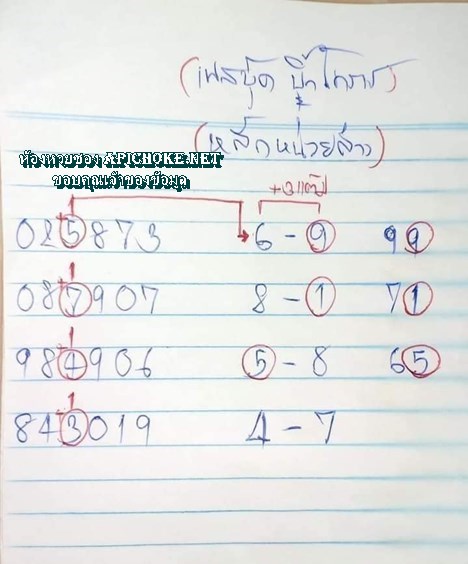 (เฟสบุ๊ค บิ๊ก โคราช)
(หลักหน่วยล่าง)
ห้องหวยซอง APICHOKE.NET
ขอบคุณเจ้าของข้อมูล
+3 แต้ม
025873 6 - 9 99
+1
087907 8 - 1 71
+1
984906 5 - 8 65
+1
843019 4 - 7
+1